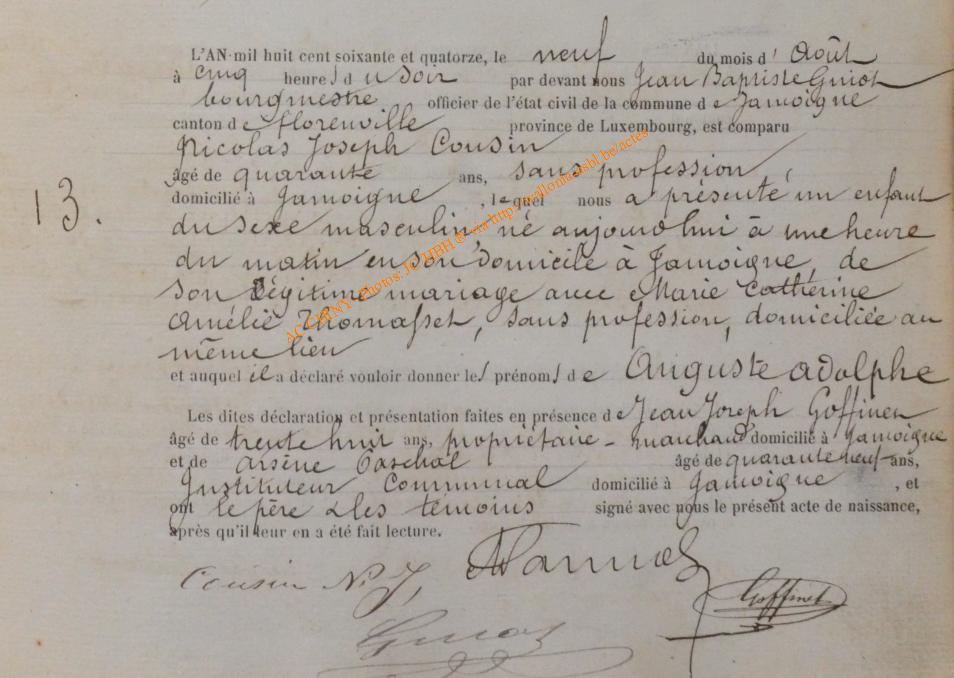 L'AN mil huit cent soixante et quatorze, le neuf du mois d' Août
à cinq heures du soir par devant nous Jean Baptiste Guiot
bourgmestre officier de l'état civil de la commune de Jamoigne
canton de Florenville province de Luxembourg, est comparu
Nicolas Joseph Cousin
âgé de quarante ans, sans profession
domicilié à Jamoigne, lequel nous a présenté un enfant
13. du sexe masculin, né aujourd'hui à une heure
du matin en son domicile à Jamoigne, de
son légitime mariage avec Marie Catherine
Amélie Thomasset, sans profession, domiciliée au
même lieu
et auquel il a déclaré vouloir donner les prénoms de Auguste Adolphe
Les dites déclaration et présentation faites en présence de Jean Joseph Goffinet
âgé de trente huit ans, propriétaire - marchand domicilié à Jamoigne
et de Arsène âgé de quarante neuf ans,
Instituteur Communal domicilié à Jamoigne, et
ont le père & les témoins signé avec nous le présent acte de naissance,
après qu'il leur en a été fait lecture.
Cousin N. J,
Goffinet
Guiot
ACCBRNY - Photos: JC HBH @ via http://wallonia.asbl.be/actes